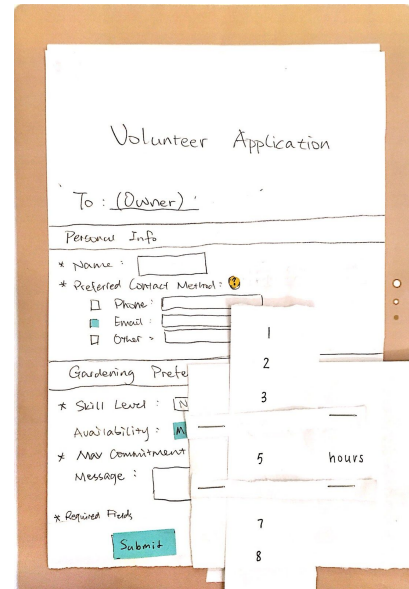 Volunteer Application
To : (Owner)
Personal Info
* Name :
* Preferred Contact Method : ?
Phone :
Email :
Other :
Gardening Prefe
* Skill Level : N
Availability : M
* Max Commitment
Message :
* Required Fields
Submit
1
2
3
5 hours
7
8